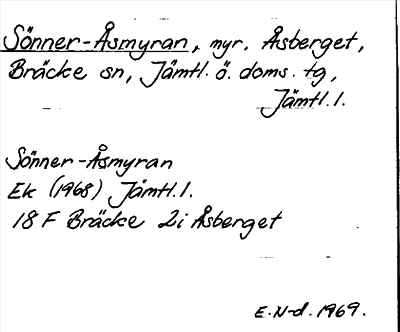 Sönner-Åsmyran, myr. Åsberget,
Bräcke sn, Jämtl. ö. doms. tg,
Jämtl. l.
Sönner-Åsmyran
Ek (1968) Jämtl. l.
18 F Bräcke 2i Åsberget
E. N-d. 1969.